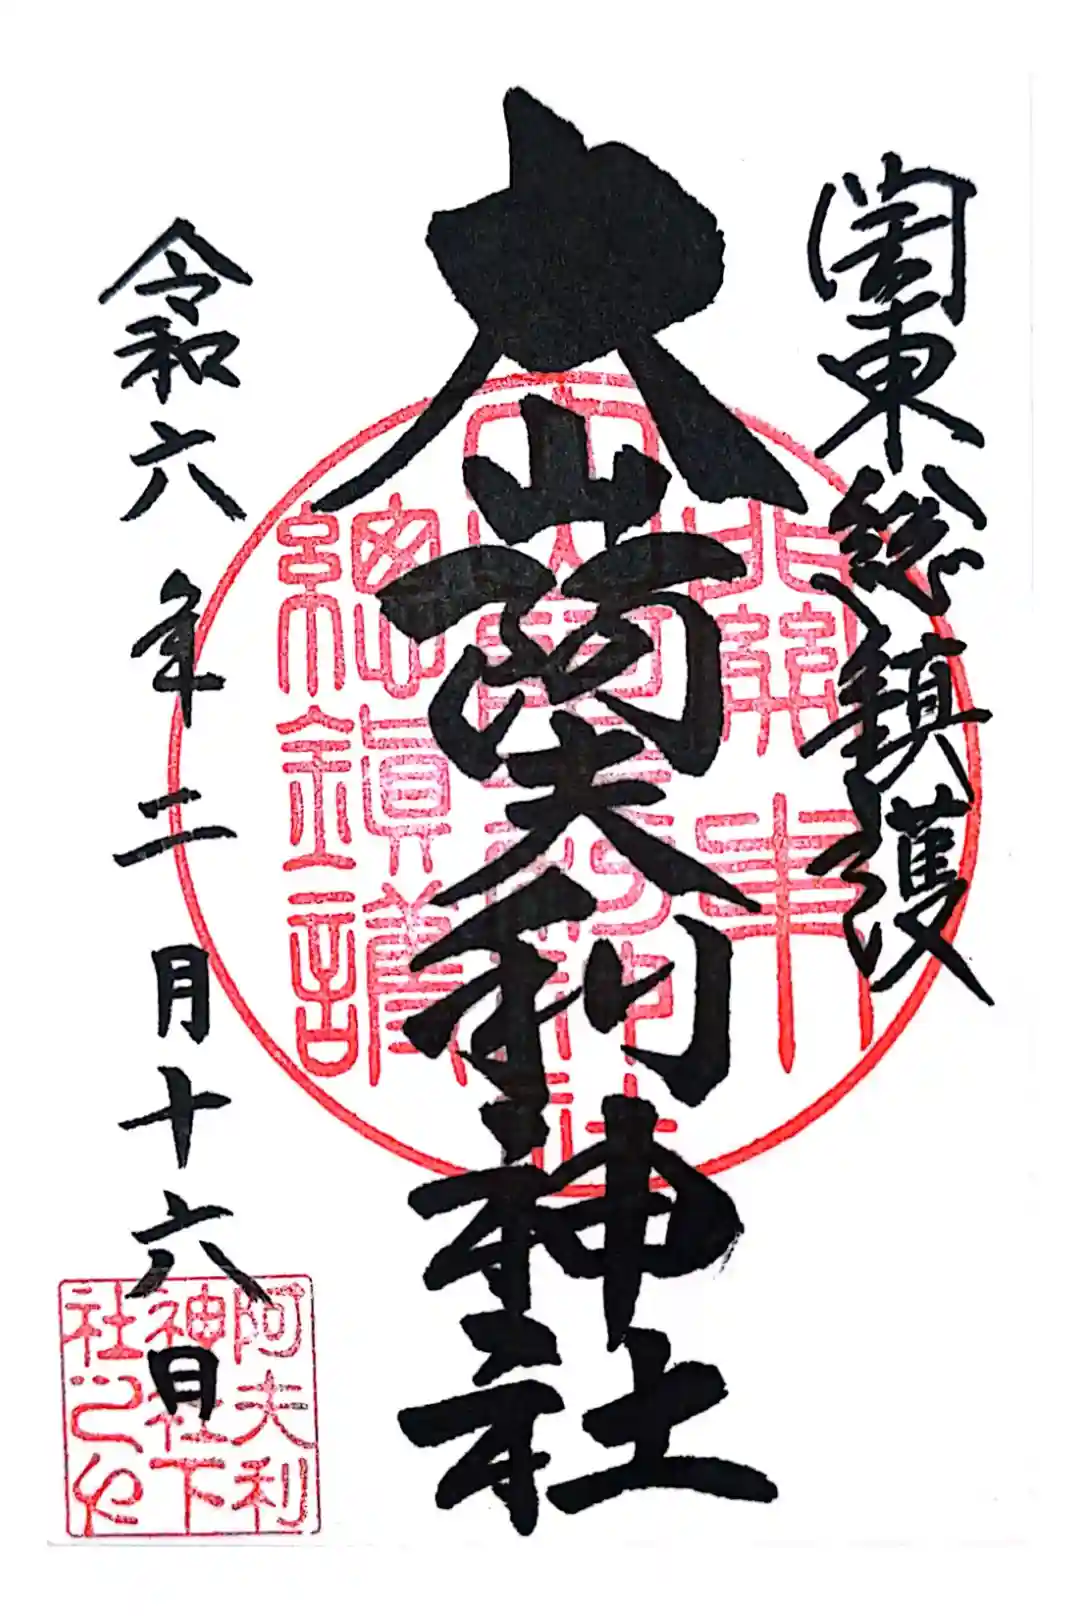 関東総鎮護
大山阿夫利神社
令和六年二月十六日
關東
總鎮護
阿夫利
神社下
社之印